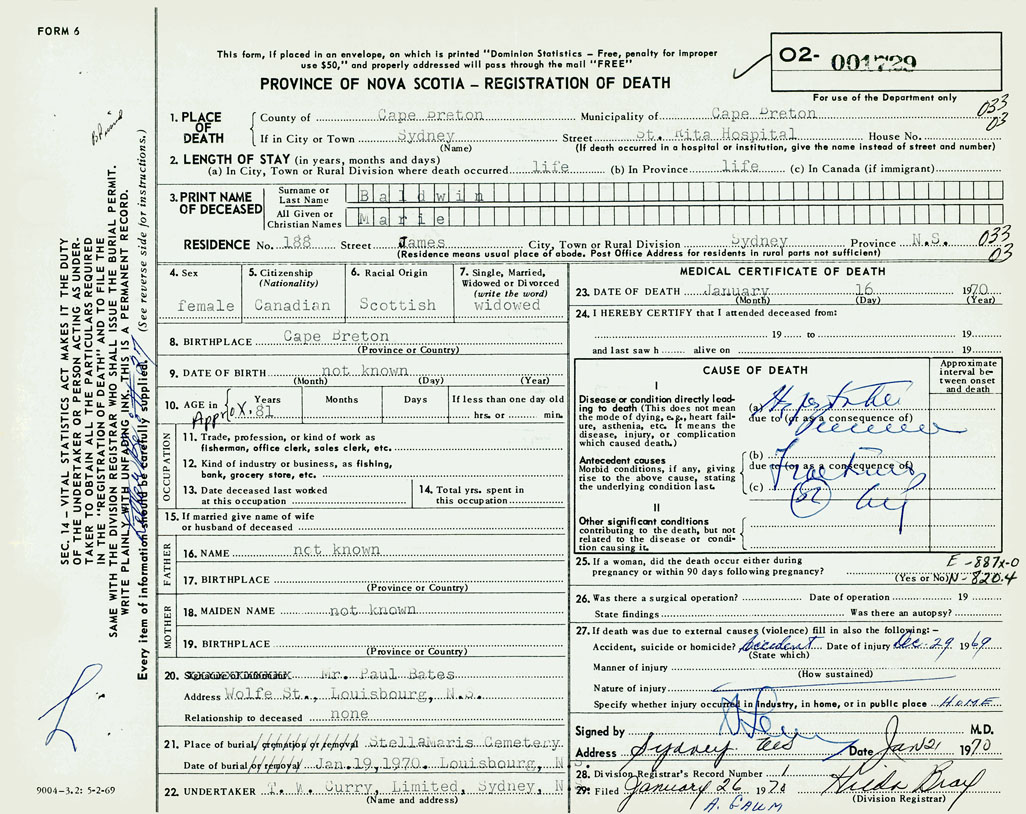 FORM 6
This form, if placed in an envelope, on which is printed "Dominion Statistics – Free, penalty for improper
use $50," and properly addressed will pass through the mail "FREE"
PROVINCE OF NOVA SCOTIA – REGISTRATION OF DEATH
O2- 001729
For use of the Department only
033
03
1. PLACE OF DEATH
County of Cape Breton Municipality of Cape Breton
If in City or Town Sydney Street St. Rita Hospital House No.
(Name) (If death occurred in a hospital or institution, give the name instead of street and number)
2. LENGTH OF STAY (in years, months and days)
(a) In City, Town or Rural Division where death occurred life (b) In Province life (c) In Canada (if immigrant)
3. PRINT NAME OF DECEASED
Surname or Last Name Baldwin
All Given or Christian Names Marie
RESIDENCE No. 188 Street James City, Town or Rural Division Sydney Province N.S.
(Residence means usual place of abode. Post Office Address for residents in rural parts not sufficient)
033
03
4. Sex
female
5. Citizenship
(Nationality)
Canadian
6. Racial Origin
Scottish
7. Single, Married,
Widowed or Divorced
(write the word)
widowed
8. BIRTHPLACE Cape Breton
(Province or Country)
9. DATE OF BIRTH not known
(Month) (Day) (Year)
10. AGE in Years Months Days If less than one day old
Approx. 81 hrs. or min.
OCCUPATION
11. Trade, profession, or kind of work as
fisherman, office clerk, sales clerk, etc.
12. Kind of industry or business, as fishing,
bank, grocery store, etc.
13. Date deceased last worked
at this occupation
14. Total yrs. spent in
this occupation
15. If married give name of wife
or husband of deceased
FATHER
16. NAME not known
17. BIRTHPLACE
(Province or Country)
MOTHER
18. MAIDEN NAME not known
19. BIRTHPLACE
(Province or Country)
20. Signature of Informant Mr. Paul Bates
Address Wolfe St., Louisbourg, N.S.
Relationship to deceased none
21. Place of burial cremation or removal Stella Maris Cemetery
Date of burial or removal Jan.19,1970. Louisbourg, N.S.
22. UNDERTAKER T. W. Curry, Limited, Sydney, N
(Name and address)
MEDICAL CERTIFICATE OF DEATH
23. DATE OF DEATH January 16 1970
(Month) (Day) (Year)
24. I HEREBY CERTIFY that I attended deceased from:
19 to 19
and last saw h alive on 19
CAUSE OF DEATH
Approximate
interval be-
tween onset
and death
I
Disease or condition directly lead-
ing to death (This does not mean
the mode of dying, e.g., heart fail-
ure, asthenia, etc. It means the
disease, injury, or complication
which caused death.)
(a) Hypostatic
due to (or as a consequence of)
Antecedent causes
Morbid conditions, if any, giving
rise to the above cause, stating
the underlying condition last.
(b)
due to (or as a consequence of)
Fracture
(c)
II
Other significant conditions
contributing to the death, but not
related to the disease or condi-
tion causing it.
25. If a woman, did the death occur either during
pregnancy or within 90 days following pregnancy? (Yes or No)
E-887X-0
N-820.4
26. Was there a surgical operation? Date of operation 19
State findings Was there an autopsy?
27. If death was due to external causes (violence) fill in also the following: –
Accident, suicide or homicide? Accident Date of injury Dec. 29 1969
(State which)
Manner of injury
(How sustained)
Nature of injury
Specify whether injury occurred in industry, in home, or in public place HOME
Signed by M.D.
Address Sydney Date Jan 21 1970
28. Division Registrar's Record Number 1
29. Filed January 26 1970 Hilda Bray
(Division Registrar)
SEC. 14 – VITAL STATISTICS ACT MAKES IT THE DUTY
OF THE UNDERTAKER OR PERSON ACTING AS UNDER-
TAKER TO OBTAIN ALL THE PARTICULARS REQUIRED
IN THE "REGISTRATION OF DEATH" AND TO FILE THE
SAME WITH THE DIVISION REGISTRAR WHO SHALL ISSUE THE BURIAL PERMIT.
WRITE PLAINLY WITH UNFADING INK. THIS IS A PERMANENT RECORD.
Every item of information should be carefully supplied. (See reverse side for instructions.)
9004-3.2: 5-2-69